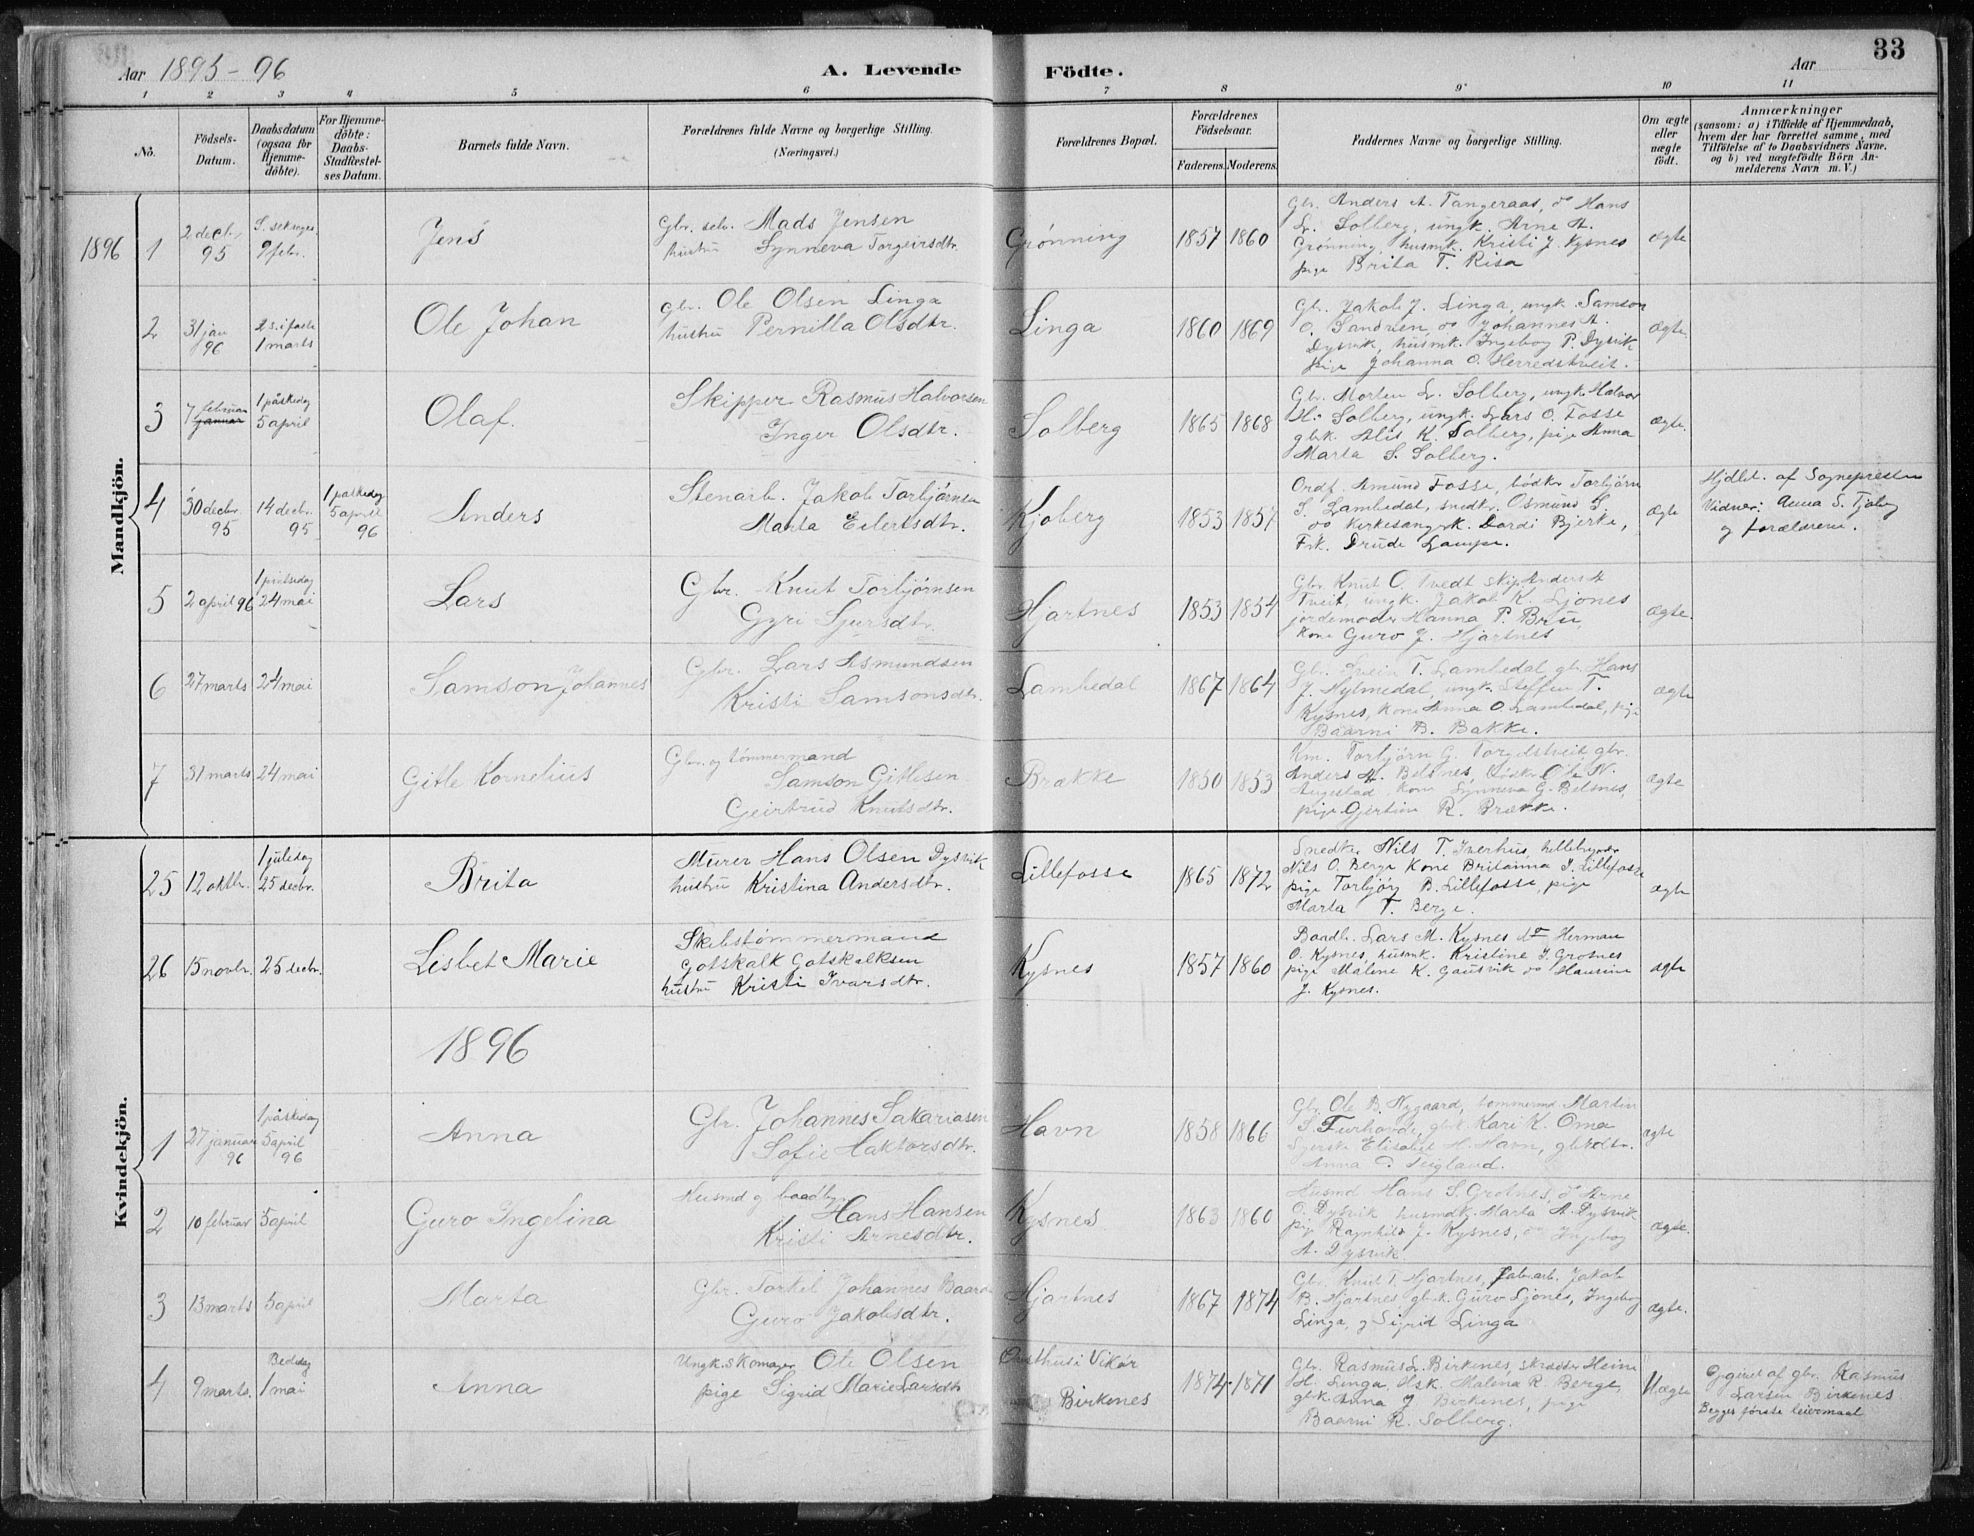 Aar 1895-96
A. Levende
Födte.
Aar
33
1 2 3 4 5 6 7 8 9 10 11
No.
Födsels-
Datum.
Daabsdatum
(ogsaa för
Hjemme-
döbte).
For Hjemme-
döbte:
Daabs-
Stadfæstel-
ses Datum.
Barnets fulde Navn.
Forældrenes fulde Navne og borgerlige Stilling.
(Næringsvei.)
Forældrenes Bopæl.
Forældrenes
Födselsaar.
Faderens. Moderens.
Faddernes Navne og borgerlige Stilling.
Om ægte
eller
uægte
födt.
Anmærkninger
(saasom: a) i Tilfælde af Hjemmedaab,
hvem der har forrettet samme, med
Tilföielse af to Daabsvidners Navne,
og b) ved uægtefödte Börn An-
melderens Navn m. V.)
Mandkjön.
1896
1
2 decbr.
95
S. seksages.
9 febr.
Jens
Gbr. selv. Mads Jensen
hustru Synneva Torgeirsdtr.
Grønning
1857 1860
Gbr. Anders A. Tangeraas, do Hans
L. Solberg, ungk. Arne A.
Grønning, husmk. Kristi J. Kysnes
pige Brita T. Risa
ægte
2
31 jan
96
2 s. i faste
1 marts
Ole Johan
Gbr. Ole Olsen Linga
hustru Pernilla Olsdtr.
Linga
1860 1869
Gbr. Jakob J. Linga, ungk. Samson
O. Sandven, do Johannes A.
Dysvik, husmk. Ingebog P. Dysvik
pige Johanna O. Herredstveit.
ægte.
3
7 februar
januar
1 påskedag
5 april
Olaf.
Skipper Rasmus Halvorsen
Inger Olsdtr.
Solberg
1865 1868
Gbr. Morten L. Solberg, ungk. Halvor
H. Solberg, ungk. Lars O. Fosse
gbk. Alis K. Solberg, pige Anna
Marta S. Solberg.
ægte.
4
30 decbr.
95
14 decbr.
95
1 påskedag
5 april
96
Anders
Stenarb. Jakob Torbjørnsen
Marta Eilertsdtr.
Kjoberg
1853 1857
Ordf. Amund Fosse, bødker Torbjörn
S. Lambedal, snedkr. Osmund S.
do Kirkesangerk. Dordi Bjerke,
Frk. Drude Lampe.
ægte
Hjdbt. af Sognepresten
Vidner: Anna S. Tjobeg
og forældrene.
5
2 april 96
1 pintsedag
24 mai
Lars
Gbr. Knut Torbjørnsen
Gyri Sjursdtr.
Hjartnes
1853 1854
Gbr Knut O. Tvedt skip. Anders A
Tveit, ungk. Jakob K. Ljones
jordemoder Hanna P. Bru,
kone Guro J. Hjartnes
ægte.
6
27 marts
24 mai
Samson Johannes
Gbr. Lars Asmundsen
Kristi Samsonsdtr.
Lambedal
1867 1864
Gbr. Svein T. Lambedal, gbr. Hans
J. Nylmedal, ungk. Steffen T.
Kysnes, kone Anna O. Lambedal, pige
Baarni B. Bakke.
ægte
7
31 marts
24 mai
Gitle Kornelius
Gbr. og tømmermand
Samson Gitlesen
Geirtrud Knutsdtr.
Brække
1850 1853
Km. Torbjörn G. Torgilstveit gbr.
Anders A. Belsnes, bödkr. Ole N.
Augestad, kone Synneva G. Belsnes,
pige Gjertine R. Brække.
ægte
Kvindekjön.
25
12 oktbr.
1 juledag
25 decbr.
Brita
Murer Hans Olsen Dysvik
hustru Kristina Andersdtr.
Lillefosse
1865 1872
Snedkr. Nils T. Iverhus,
Nils O. Berge Kone Britanna J. Lillefosse
pige Torbjörg B. Lillefosse, pige
Marta T. Berge.
ægte
26
15 novbr.
25 decbr.
Lisbet Marie
Skibstømmermand
Gotskalk Gotskalksen
hustru Kristi Ivarsdtr.
Kysnes
1857 1860
Baadb. Lars M. Kysnes do Herman
O. Kysnes, husmk. Kristine J. Grotnes
pige Malene K. Gausvik do Hansine
J. Kysnes.
ægte
1896
1
27 januar
96
1 påskedag
5 april
96
Anna
Gbr. Johannes Sakariasen
Sofie Haktorsdtr.
Havn
1858 1866
Gbr. Ole B. Nygaard, tømmermd Martin
S. Furhovde, gbk Kari K. Oma
Syerske Elisabet H. Havn, gbrdtr.
Anna D. Teigland.
ægte
2
10 februar
5 april
Guro Ingelina
Husmd og baadbyr
Hans Hansen
Kristi Arnesdtr.
Kysnes
1863 1860
Husmd Hans S. Grotnes, do Arne
O. Dysvik husmdk. Marta A. Dysvik
pige Ragnhild J. Kysnes, do Ingebog
A. Dysvik
ægte.
3
13 marts
5 april
Marta
Gbr. Torkel Johannes Baard
Guro Jakobsdtr.
Hjartnes
1867 1874
Gbr. Knut T. Hjartnes, fabr.arb. Jakob
B. Hjartnes gbk. Guro Ljones, Ingebog
Linga, og Sigrid Linga
ægte.
4
9 marts.
Bededag
1 mai
Anna
Ungk. skomager Ole Olsen
pige Sigrid Marie Larsdtr
Østhusi Vikör
Birkenes
1874 1871
Gbr. Rasmus L. Birkenes, skrædder Heine
H. Linga, Hsk. Malena R. Berge,
gbk. Anna J Birkenes, pige
Baarni R. Solberg.
Uægte
Opgivet af gbr. Rasmus
Larsen Birkenes
Begges første leiermaal